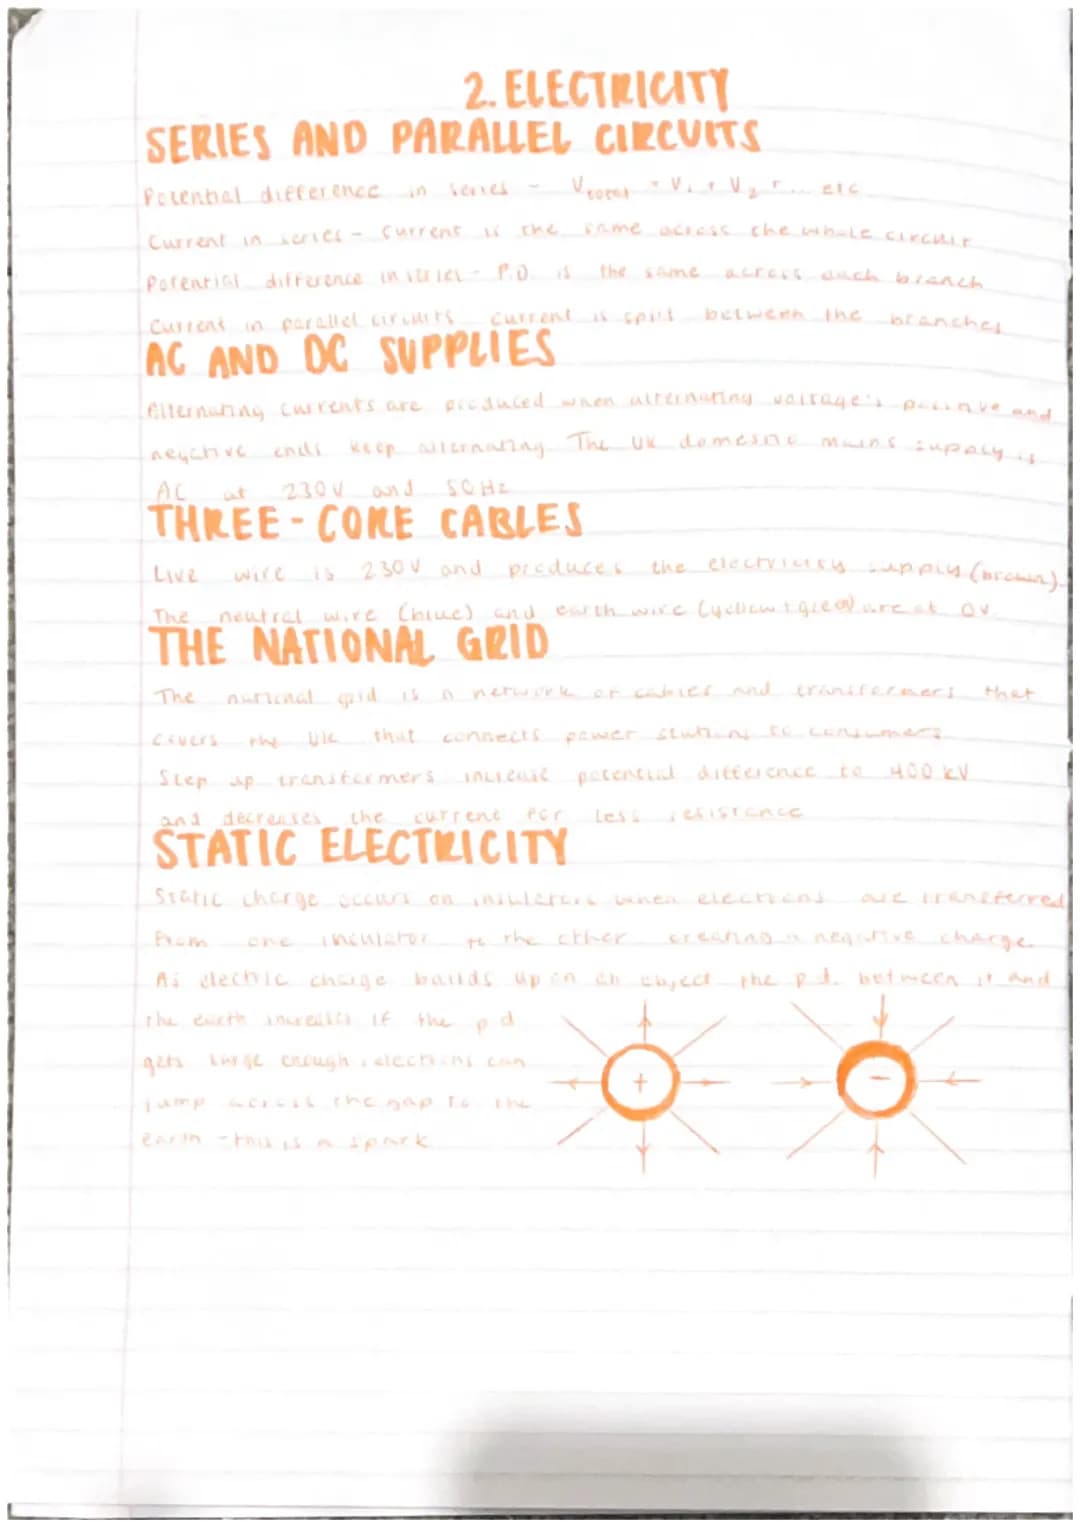 2. ELECTRICITY
SERIES AND PARALLEL CIRCUITS
Potential difference in series - Vtotal = V1 + V2 + ... etc
Current in series - current is the same across the whole circuit
Potential difference in series - P.D. is the same across each branch
Current in parallel circuits current is split between the branches
AC AND DC SUPPLIES
Alternating currents are produced when alternating voltage's positive and
negative ends keep alternating. The UK domestic mains supply is
AC at 230V and 50Hz
THREE-CORE CABLES
Live wire is 230V and produces the electricity supply (brown).
The neutral wire (blue) and earth wire (yellow + green) are at 0V.
THE NATIONAL GRID
The national grid is a network of cables and transformers that
covers the UK that connects power stations to consumers
Step up transformers increase potential difference to 400 kV
and decreases the current for less resistance
STATIC ELECTRICITY
Static charge occurs on insulators when electrons are transferred
from one insulator to the other creating a negative charge.
As electric charge builds up on an object the p.d. between it and
the earth increases. If the p.d
gets large enough, electrons can
jump across the gap to the
earth - this is a spark
+ -